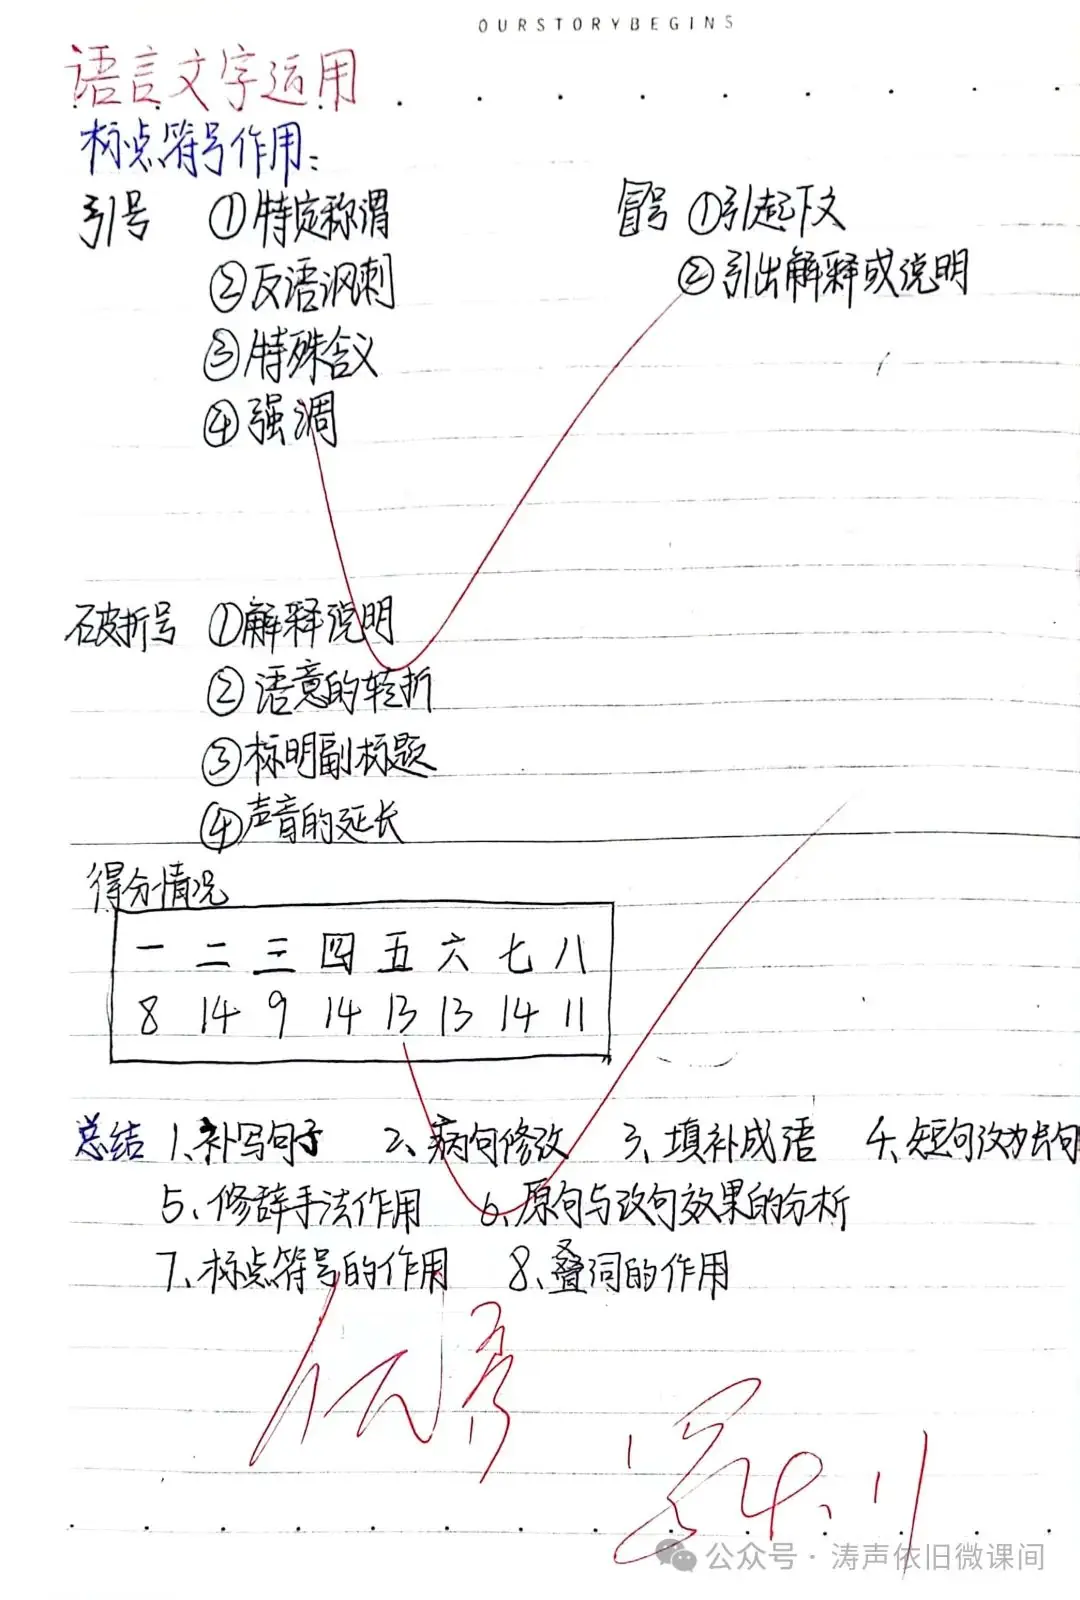 OURSTORYBEGINS
语言文字运用
标点符号作用：
引号 ①特定称谓 冒号 ①引起下文
②反语讽刺 ②引出解释或说明
③特殊含义
④强调
破折号 ①解释说明
②语意的转折
③标明副标题
④声音的延长
得分情况
一 二 三 四 五 六 七 八
8 14 9 14 13 13 14 11
总结 1、补写句子 2、病句修改 3、填补成语 4、短句改为长句
5、修辞手法作用 6、原句与改句效果的分析
7、标点符号的作用 8、叠词的作用
优秀
公众号·涛声依旧微课间